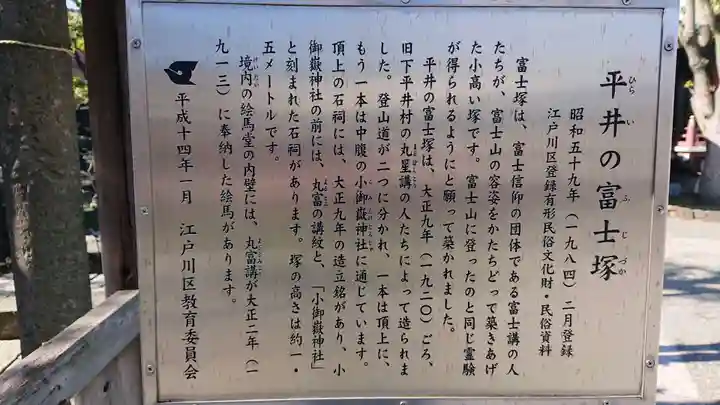 平井の富士塚
ひら い ふ じ づか
昭和五十九年(一九八四)二月登録
江戸川区登録有形民俗文化財・民俗資料
富士塚は、富士信仰の団体である富士講の人
たちが、富士山の容姿をかたちどって築きあげ
た小高い塚です。富士山に登ったのと同じ霊験
が得られるようにと願って築かれました。
平井の富士塚は、大正九年(一九二〇)ごろ、
旧下平井村の丸星講の人たちによって造られま
した。登山道が二つに分かれ、一本は頂上に、
もう一本は中腹の小御嶽神社に通じています。
頂上の石祠には、大正九年の造立銘があり、小
御嶽神社の前には、丸富の講紋と、「小御嶽神社」
と刻まれた石祠があります。塚の高さは約一・
五メートルです。
境内の絵馬堂の内壁には、丸富講が大正二年(一
九一三)に奉納した絵馬があります。
平成十四年一月 江戸川区教育委員会